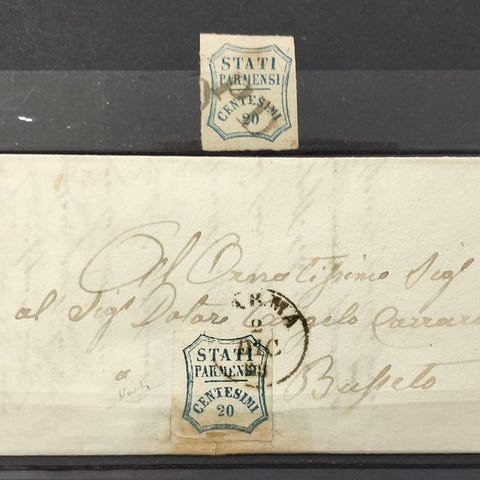 STATI
PARMENSI
CENTESIMI
20
All Ornatissimo Sigr
al Sigr Dotore Angelo Carrara
Busseto
PARMA
2
DIC
STATI
PARMENSI
CENTESIMI
20